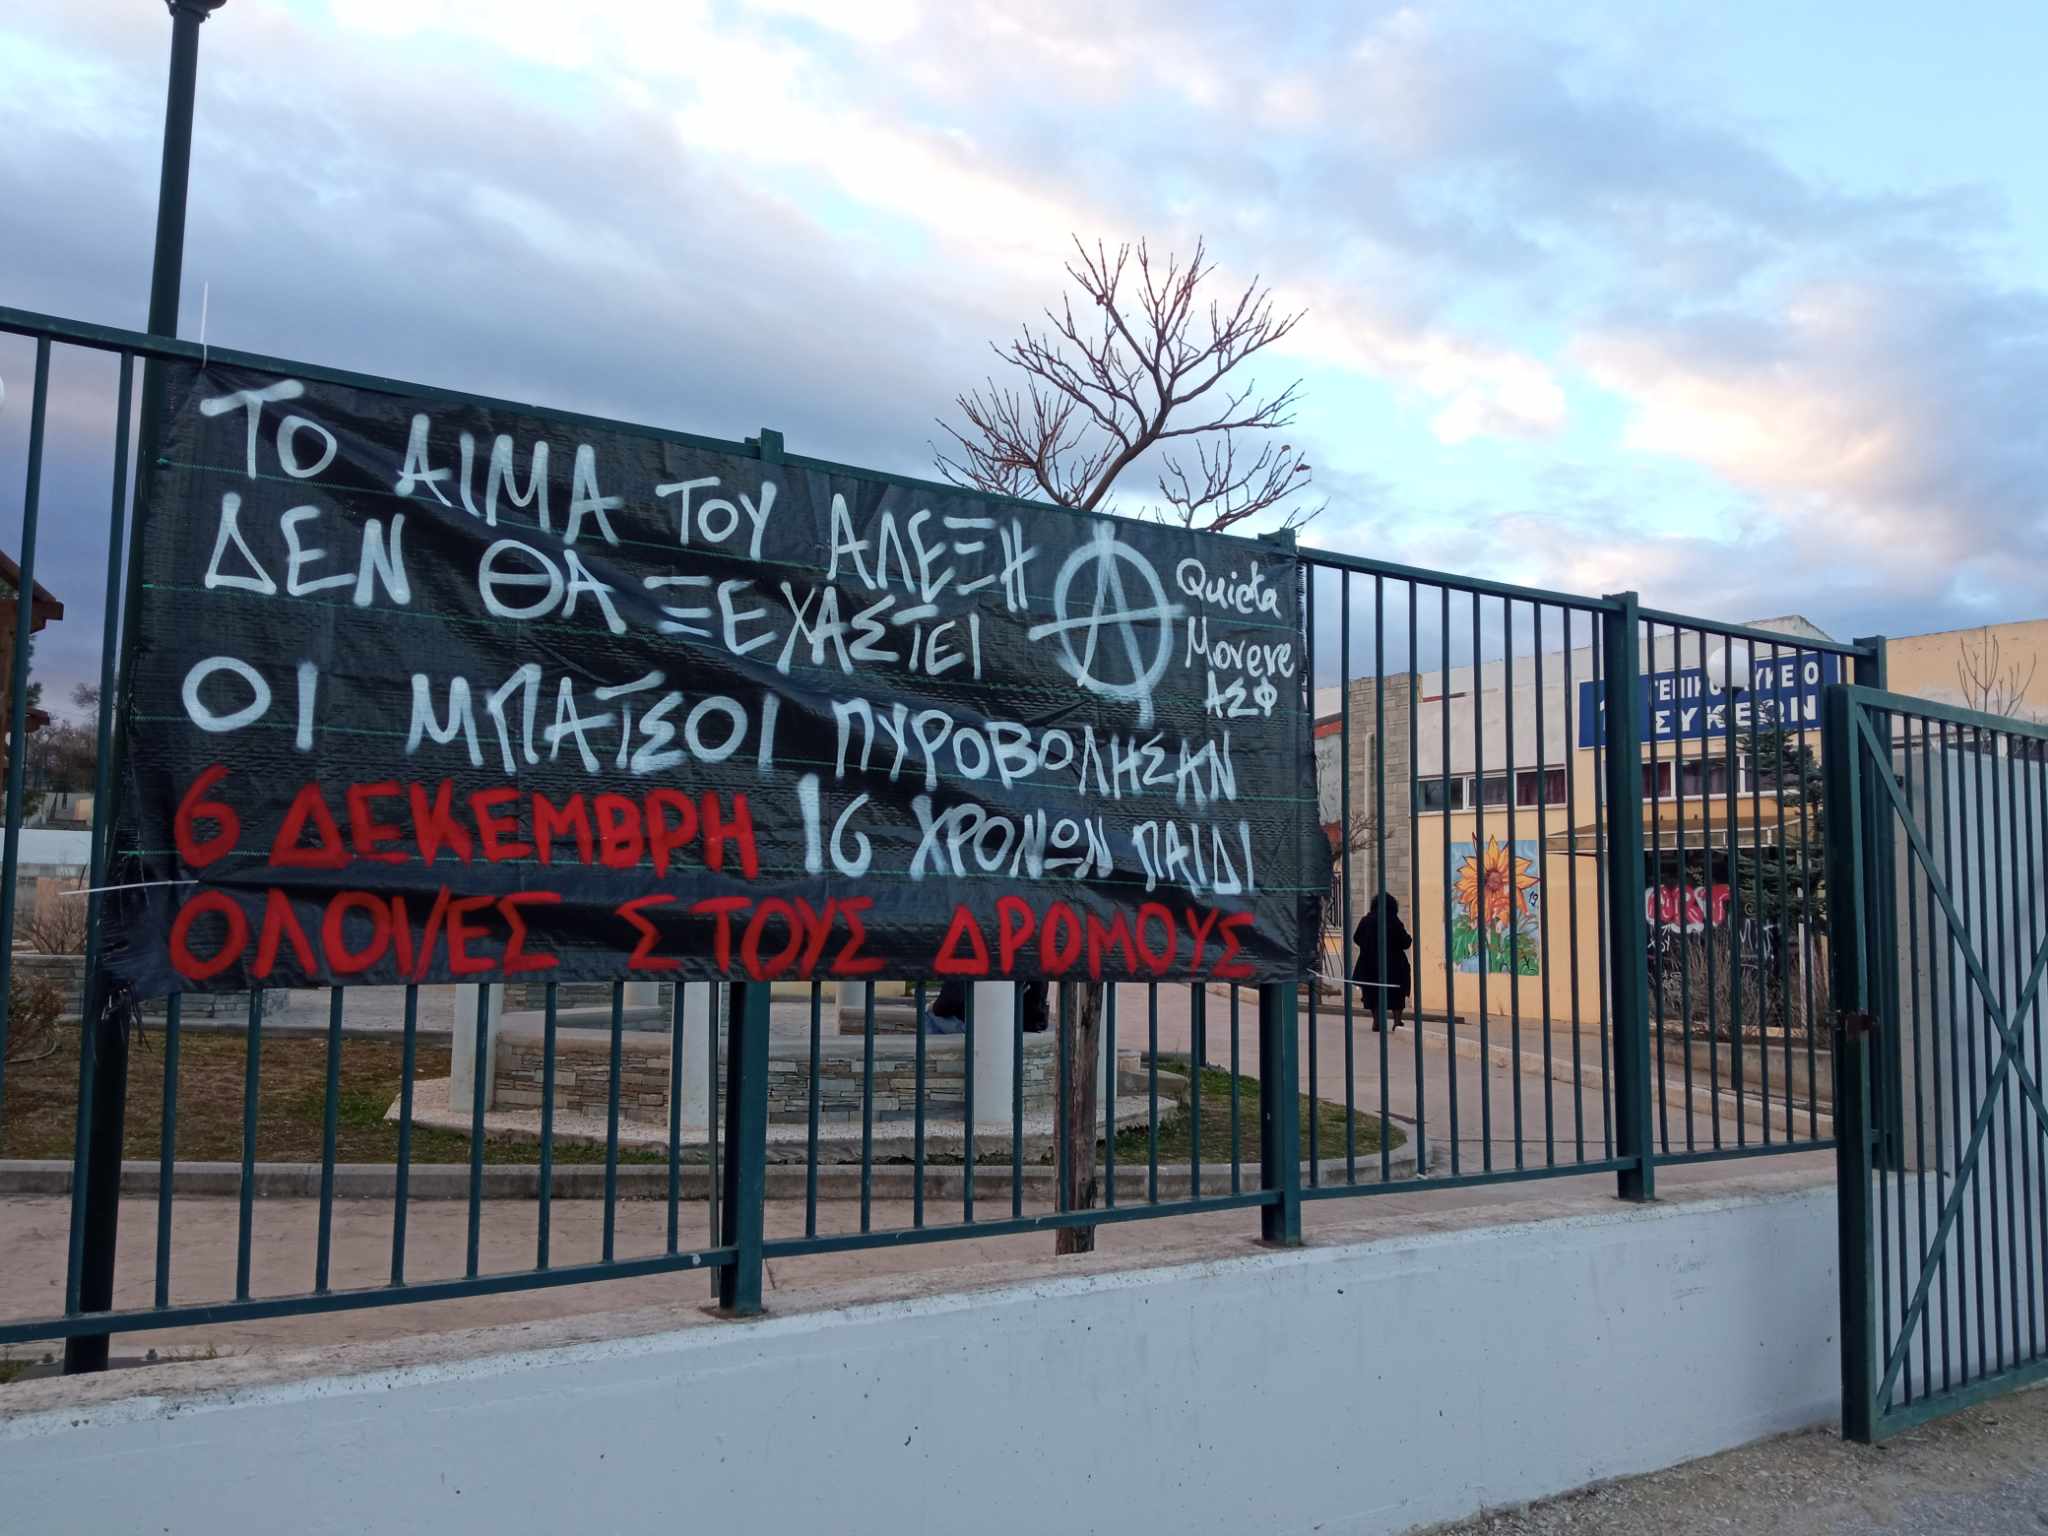 ΤΟ ΑΙΜΑ ΤΟΥ ΑΛΕΞΗ
ΔΕΝ ΘΑ ΞΕΧΑΣΤΕΙ
ΟΙ ΜΠΑΤΣΟΙ ΠΥΡΟΒΟΛΗΣΑΝ
6 ΔΕΚΕΜΒΡΗ 16 ΧΡΟΝΩΝ ΠΑΙΔΙ
ΟΛΟΙ/ΕΣ ΣΤΟΥΣ ΔΡΟΜΟΥΣ
A
Quieta
Movere
ΑΣΦ
ΣΥΚΕΩΝ